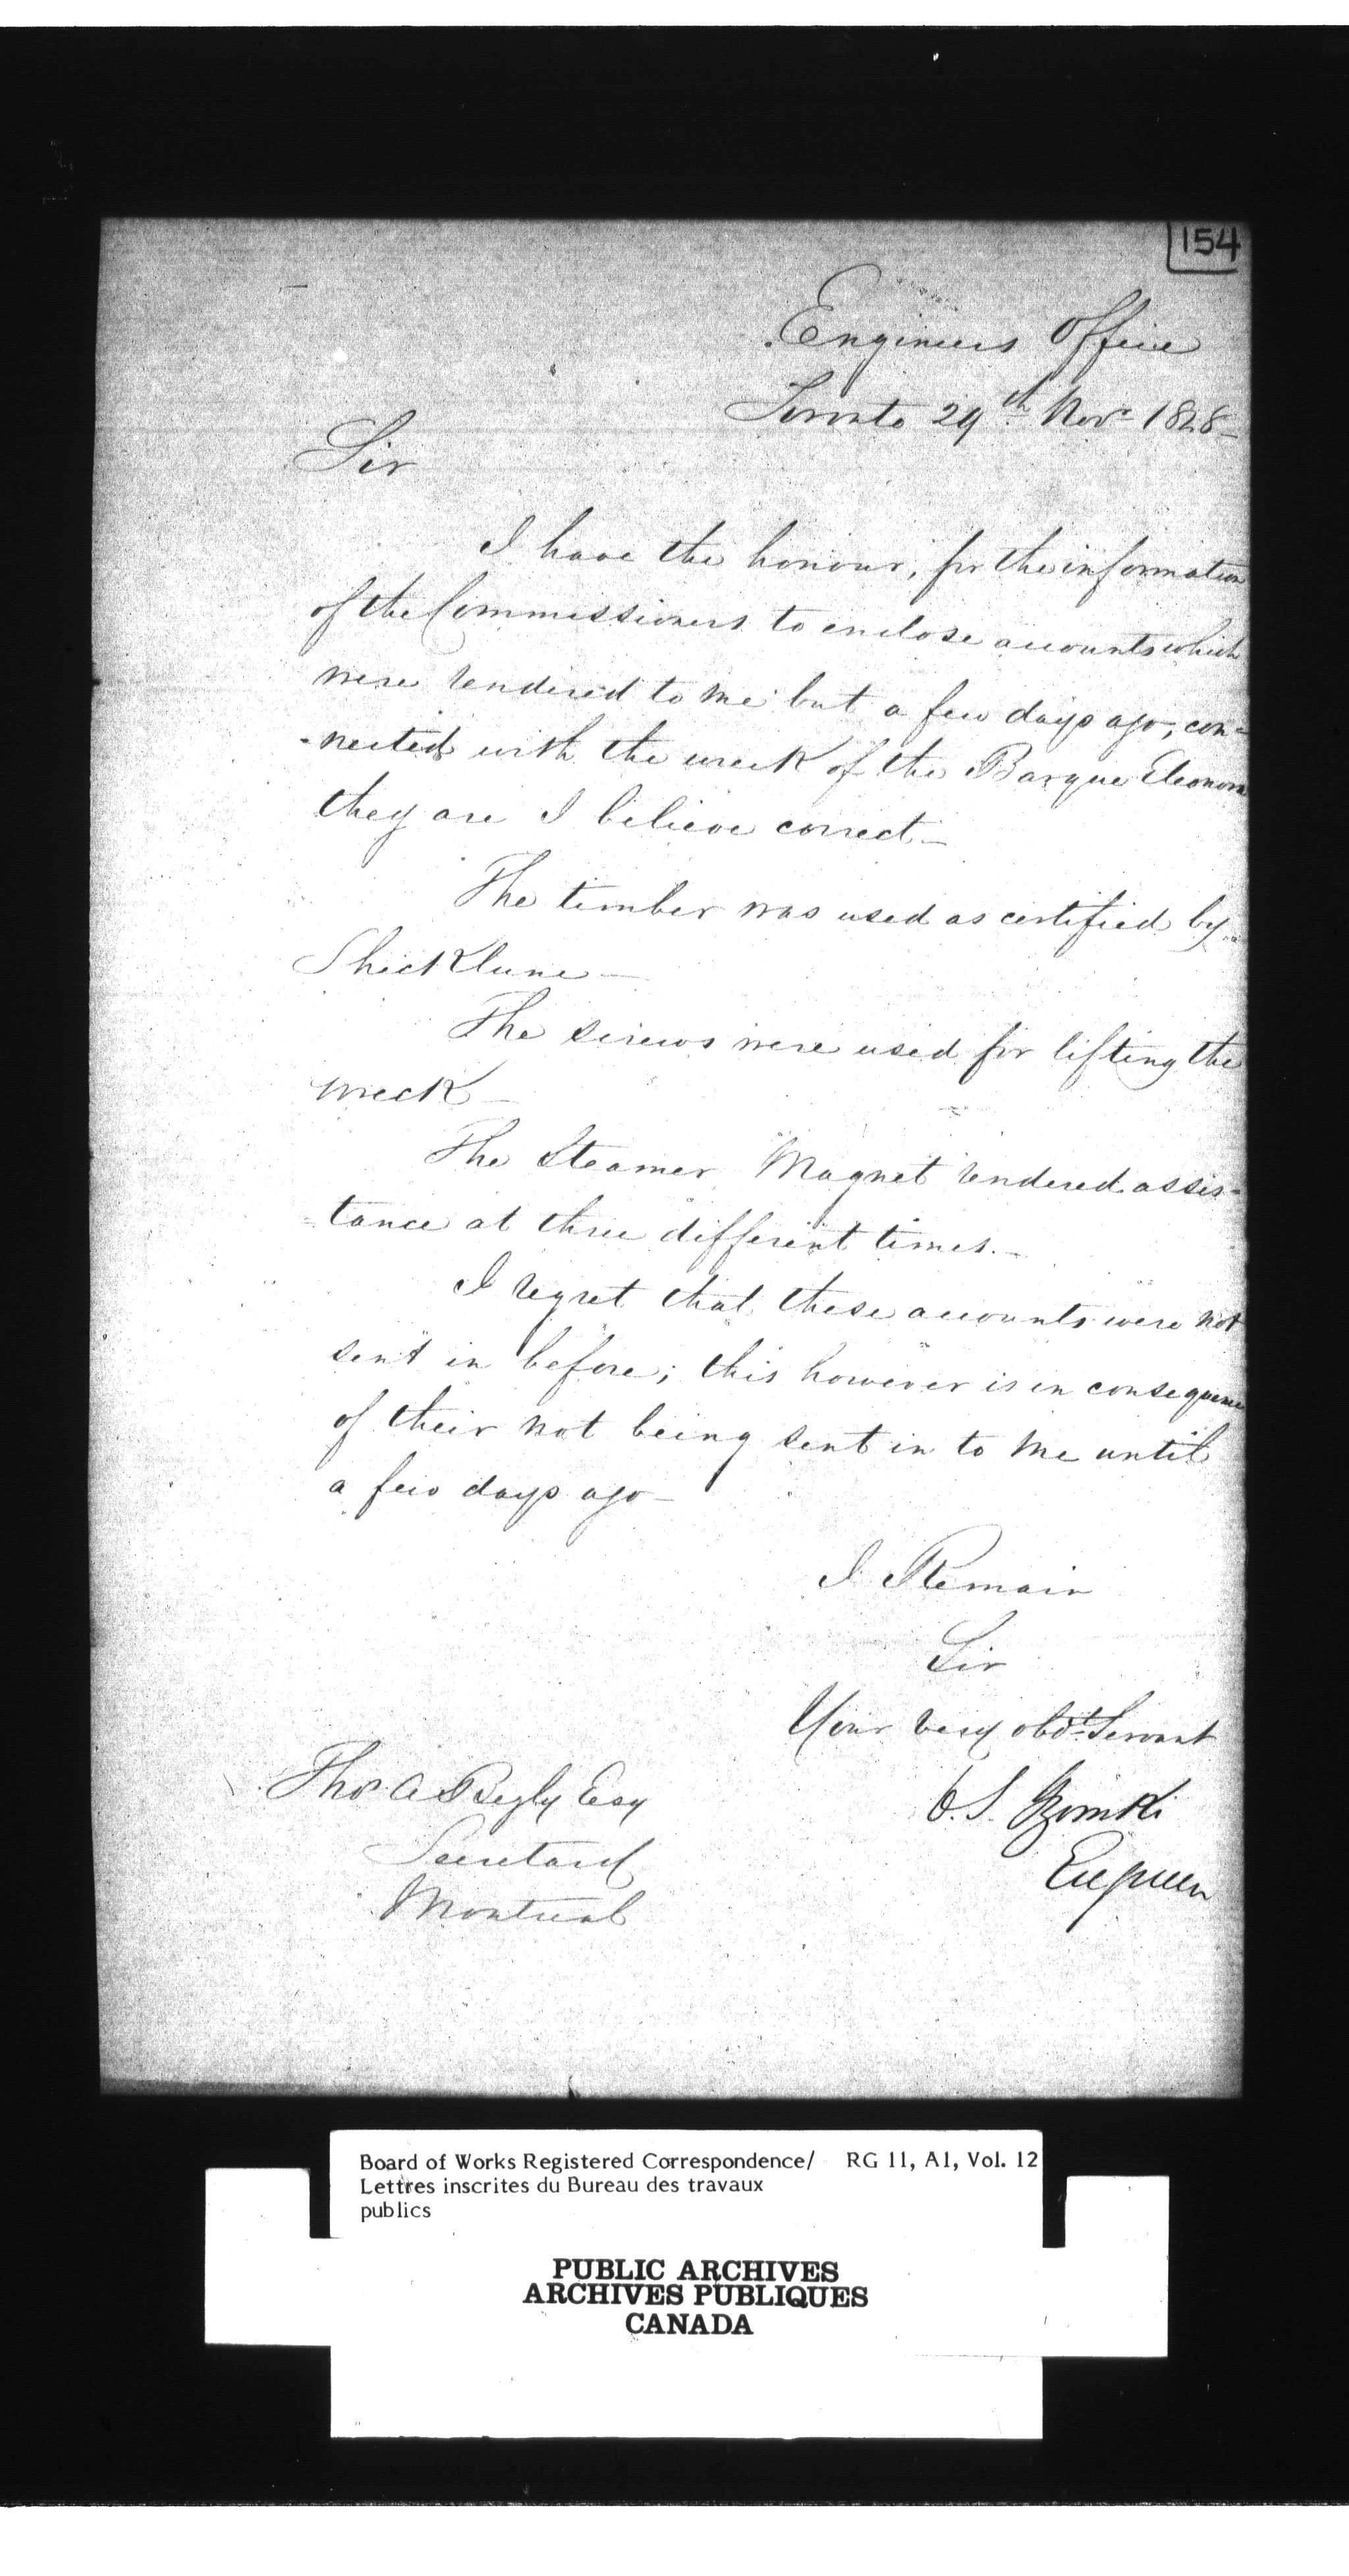 154
Engineers Office
Toronto 29th Novr 1848
Sir
I have the honour, for the information
of the Commissioners to enclose accounts which
were rendered to me but a few days ago, con=
-nected with the wreck of the Barque Eleonora
they are I believe correct_
The timber was used as certified by
Shicklune_
The screws were used for lifting the
wreck_
The Steamer Magnet rendered assis=
=tance at three different times._
I regret that these accounts were not
sent in before; this however is in consequence
of their not being sent in to me until
a few days ago_
I Remain
Sir
Your very obdt Servant
C. S. Gzowski
Engineer
Thos A Begly Esq
Secretary
Montreal
Board of Works Registered Correspondence/ RG 11, A1, Vol. 12
Lettres inscrites du Bureau des travaux
publics
PUBLIC ARCHIVES
ARCHIVES PUBLIQUES
CANADA